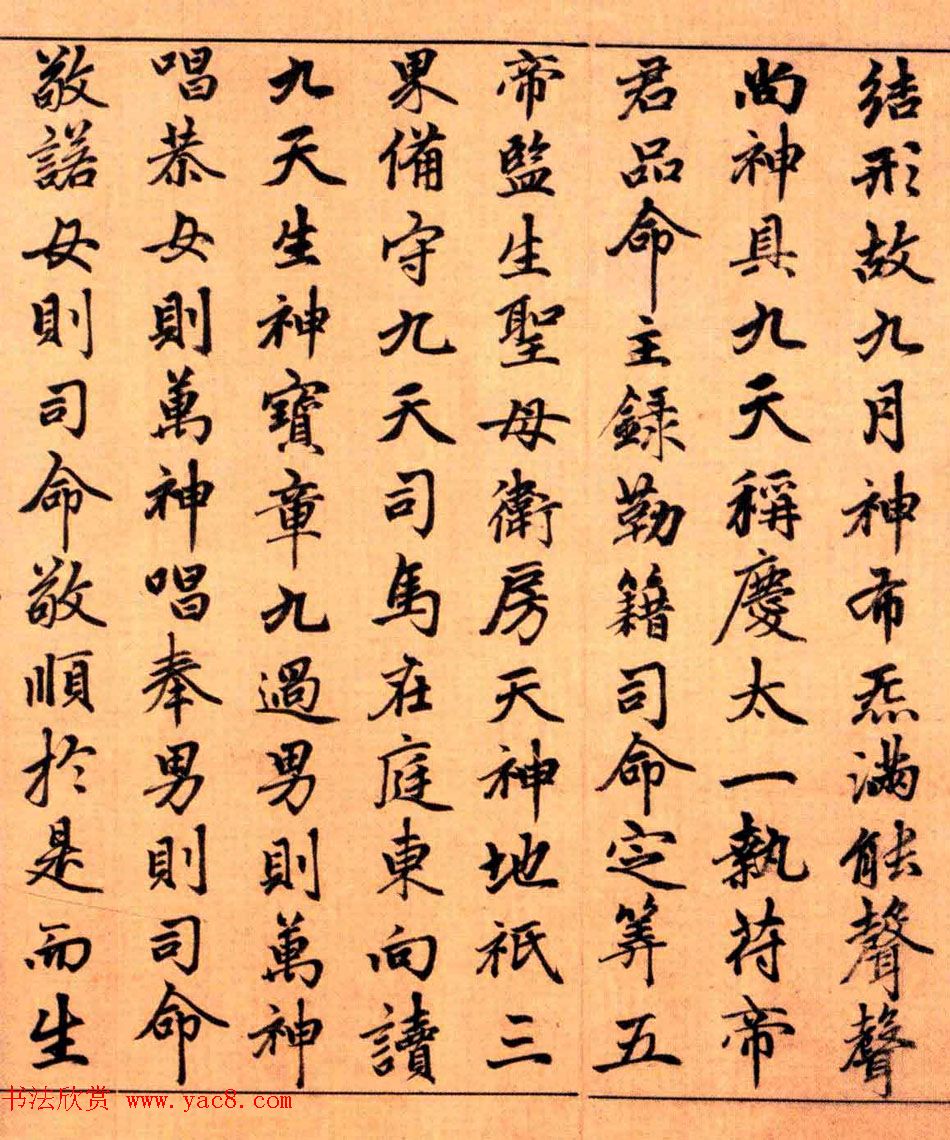 結形故九月神布炁滿能聲聲
尚神具九天稱慶太一執符帝
君品命主録勒籍司命定筭五
帝監生聖母衛房天神地祇三
界備守九天司馬在庭東向讀
九天生神寶章九過男則萬神
唱恭女則萬神唱奉男則司命
敬諾女則司命敬順於是而生
书法欣赏 www.yac8.com